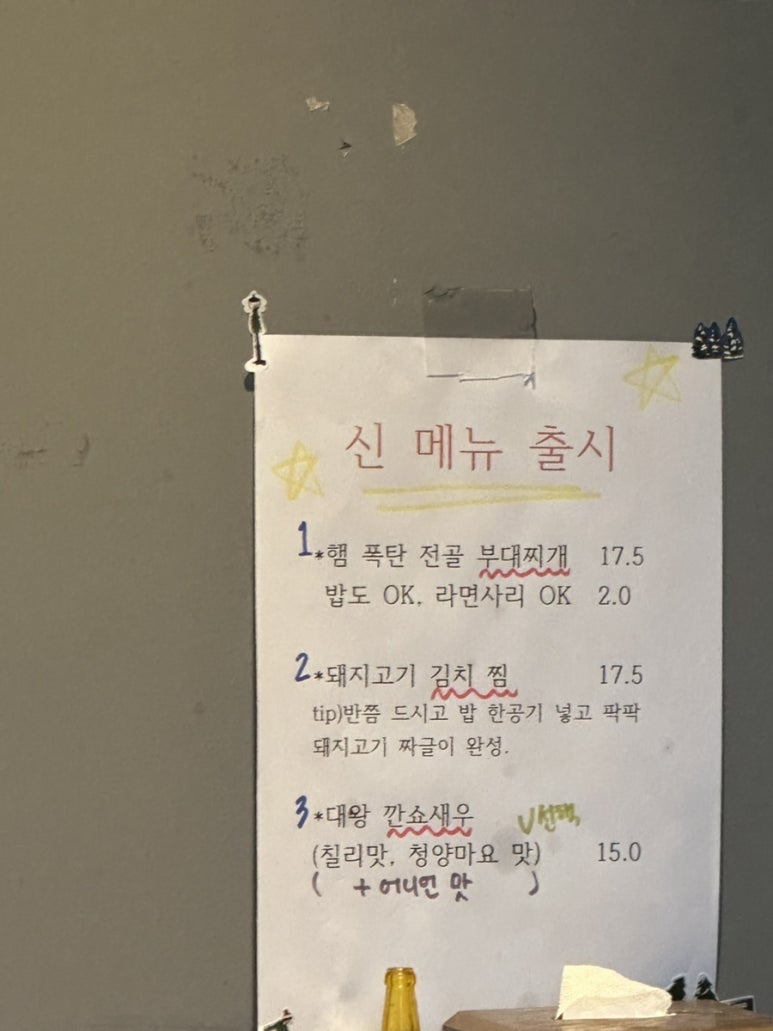 신 메뉴 출시
1 *햄 폭탄 전골 부대찌개 17.5
밥도 OK, 라면사리 OK 2.0
2 *돼지고기 김치 찜 17.5
tip)반쯤 드시고 밥 한공기 넣고 팍팍
돼지고기 짜글이 완성.
3 *대왕 깐쇼새우 V선택
(칠리맛, 청양마요 맛) 15.0
( + 어니언 맛 )